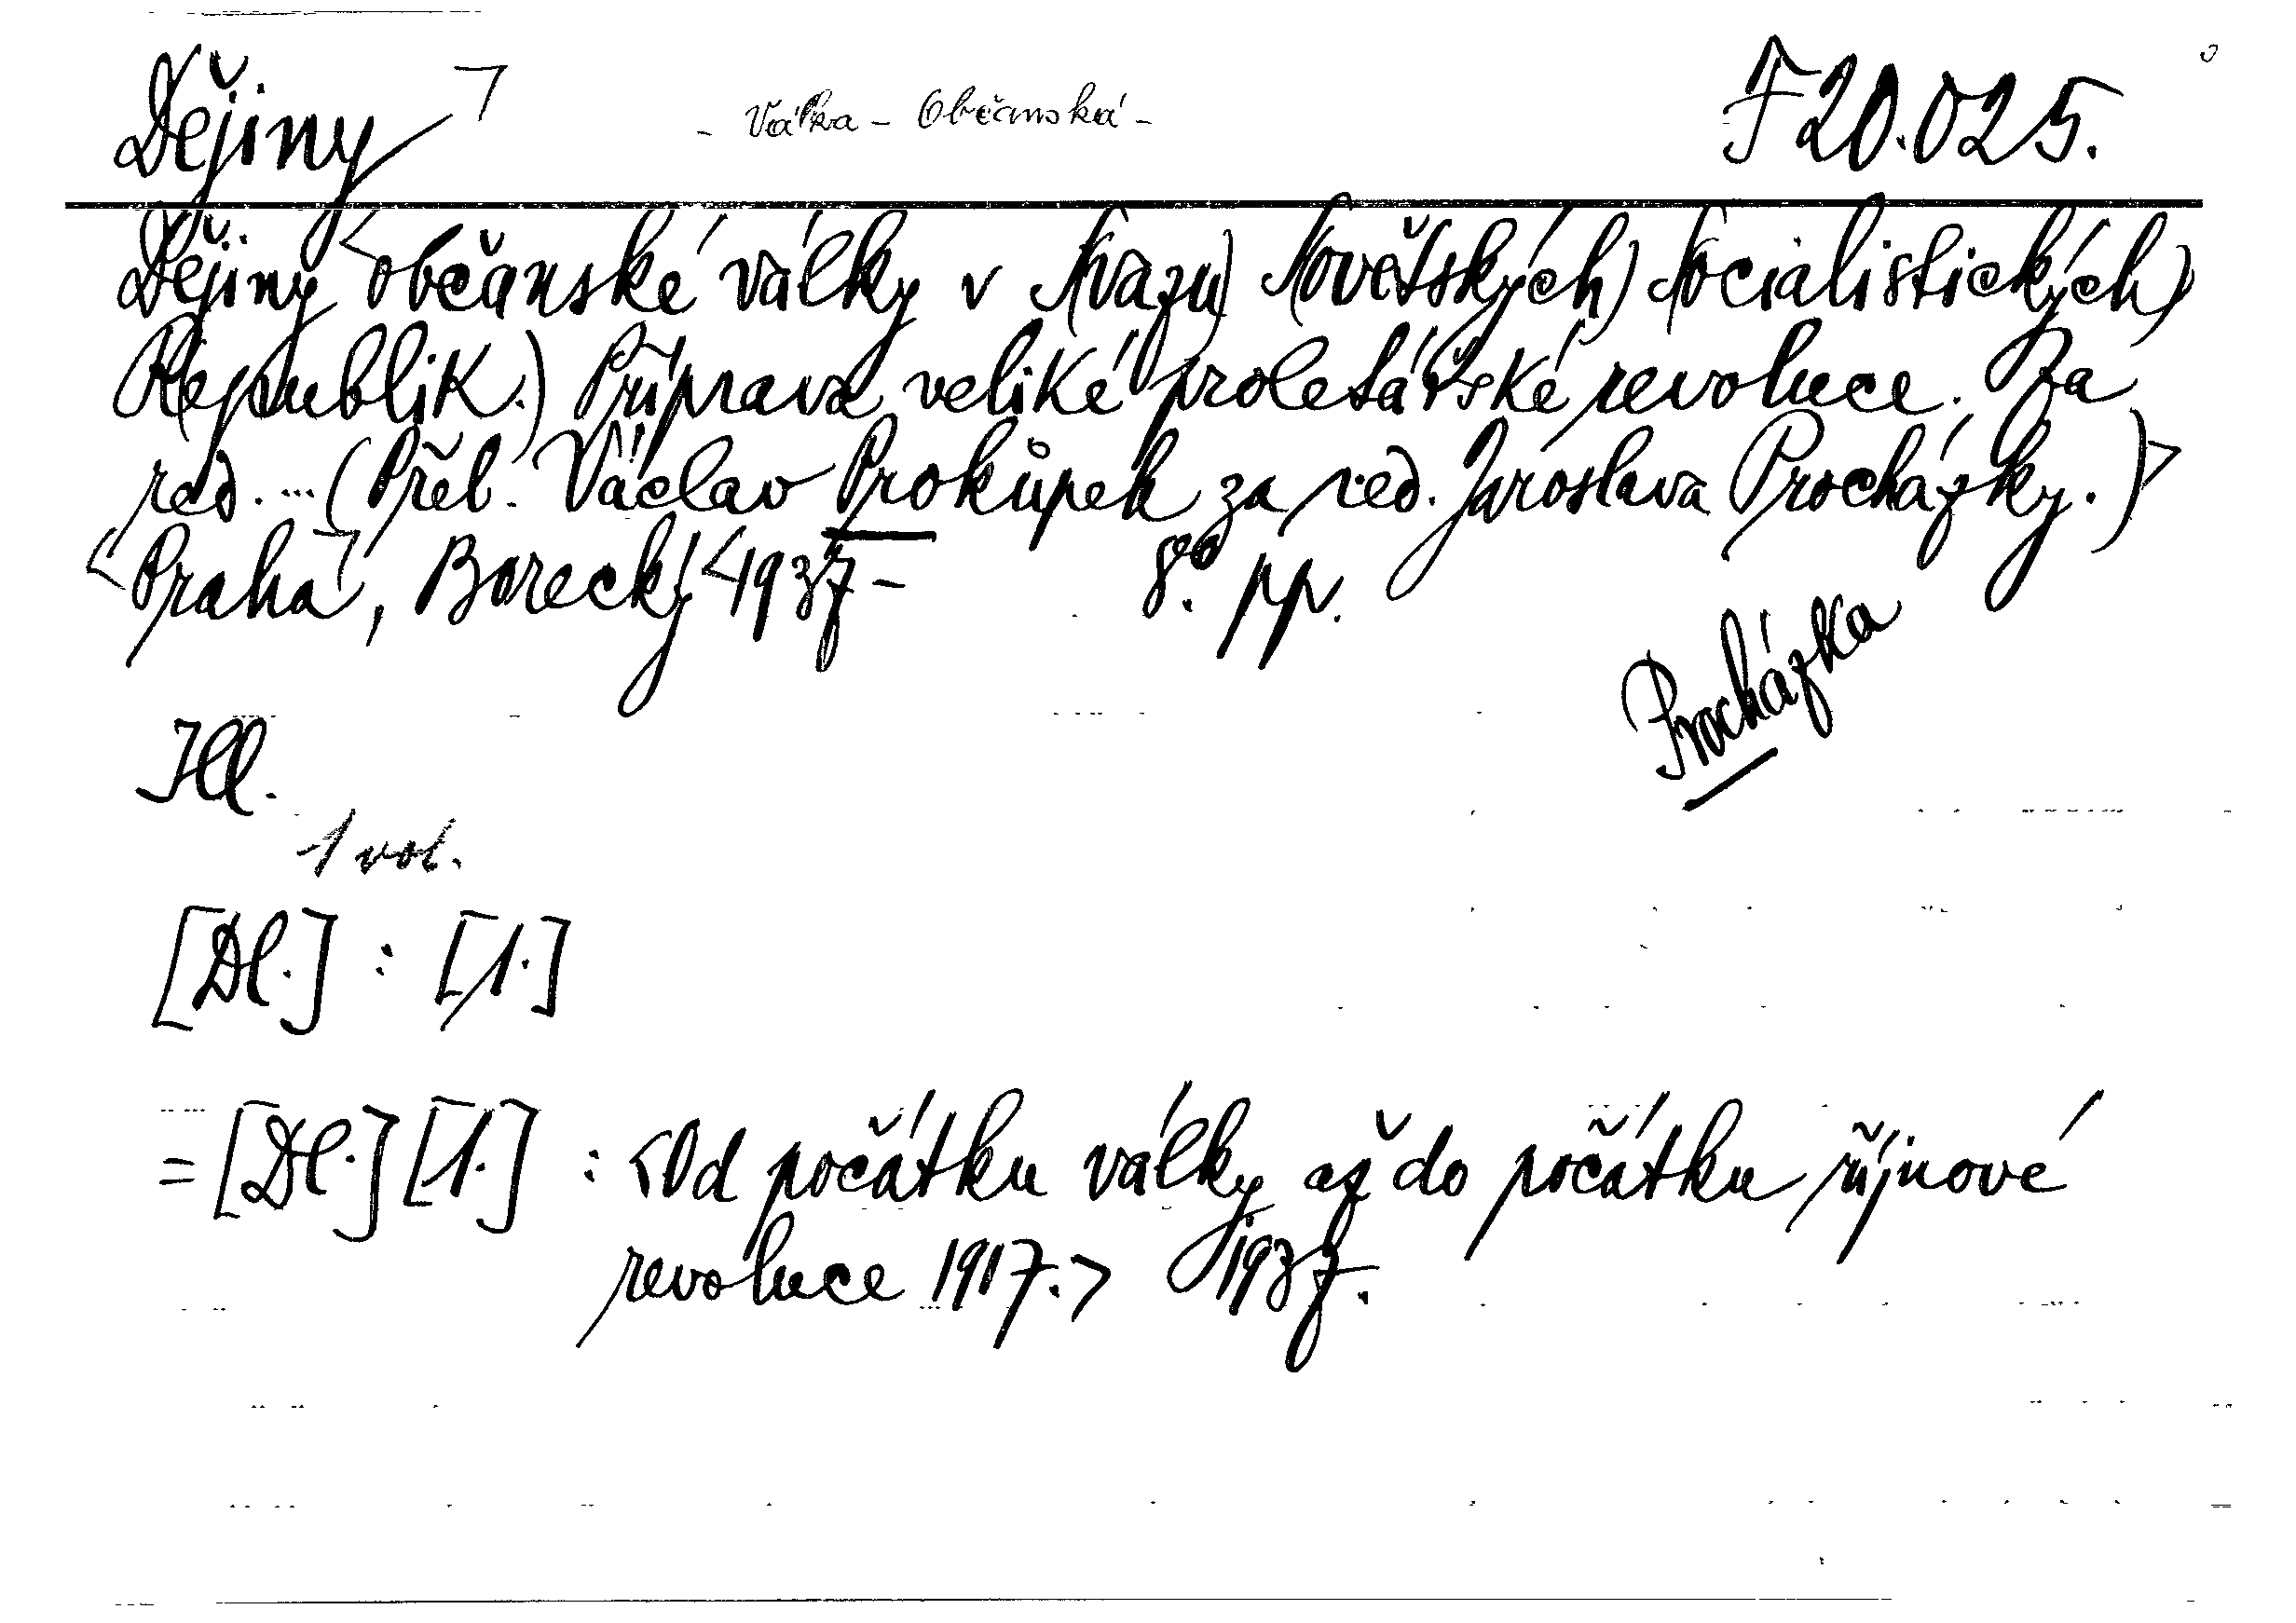 Dějiny ¬ - Válka - Občanská - F 20.025.
Dějiny <občanské války v S(vazu) S(ovětských) S(ocialistických)
R(epublik.) Příprava veliké proletářské revoluce. Za
red. ... (Přel. Václav Prokůpek za red. Jaroslava Procházky.)>
<Praha¬, Borecký <1937 - 8° pp.
Procházka
Ill.
1 vol.
[Dl.] : [1.]
= [Dl.] [1.] : <Od počátku války až do počátku říjnové
revoluce 1917.> 1937.